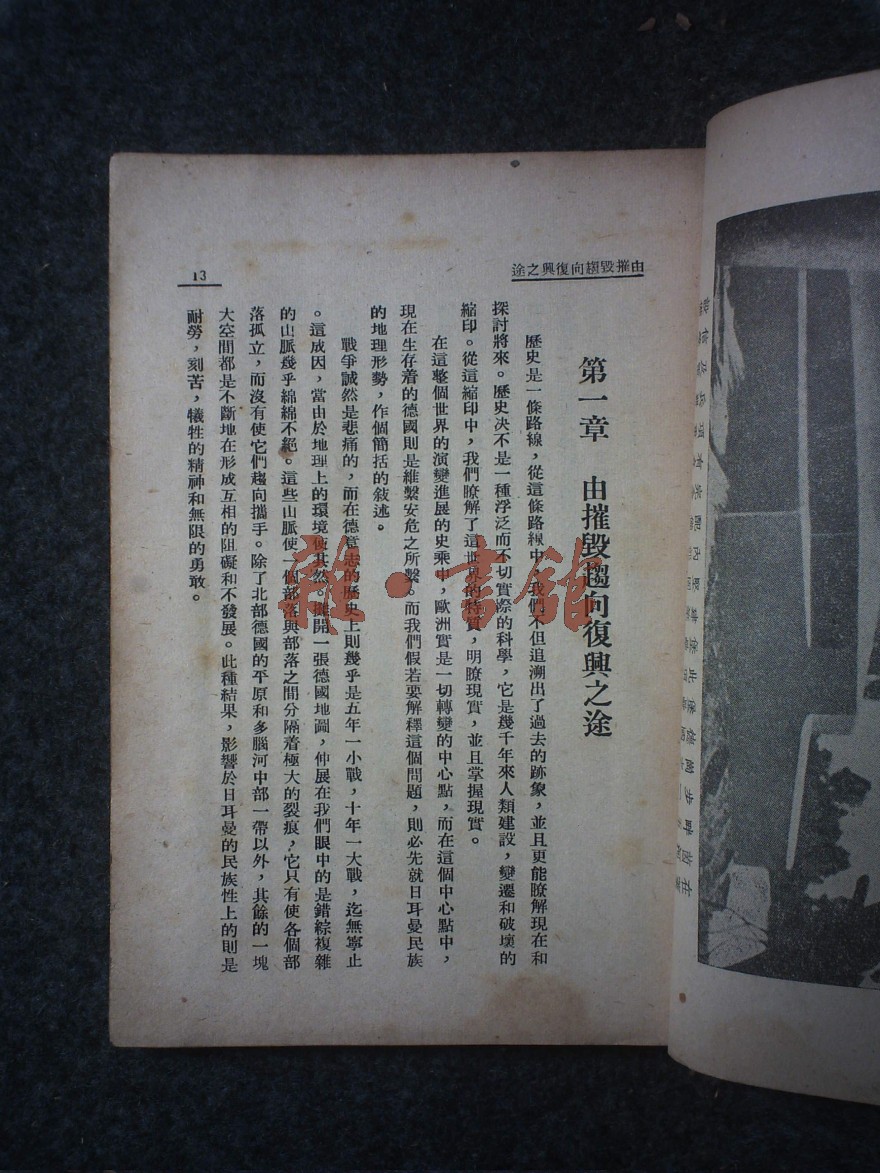 由摧毀趨向復興之途
13
第一章　由摧毀趨向復興之途
歷史是一條路線，從這條路線中，我們不但追溯出了過去的跡象，並且更能瞭解現在和
探討將來。歷史決不是一種浮泛而不切實際的科學，它是幾千年來人類建設，變遷和破壞的
縮印。從這縮印中，我們瞭解了這世界的特質，明瞭現實，並且掌握現實。
在這整個世界的演變進展的史乘中，歐洲實是一切轉變的中心點，而在這個中心點中，
現在生存着的德國則是維繫安危之所繫。而我們假若要解釋這個問題，則必先就日耳曼民族
的地理形勢，作個簡括的敍述。
戰爭誠然是悲痛的，而在德意志的歷史上則幾乎是五年一小戰，十年一大戰，迄無寧止
。這成因，當由於地理上的環境使其然，攤開一張德國地圖，伸展在我們眼中的是錯綜複雜
的山脈幾乎綿綿不絕。這些山脈使一個部落與部落之間分隔着極大的裂痕，它只有使各個部
落孤立，而沒有使它們趨向攜手。除了北部德國的平原和多腦河中部一帶以外，其餘的一塊
大空間都是不斷地在形成互相的阻礙和不發展。此種結果，影響於日耳曼的民族性上的則是
耐勞，刻苦，犧牲的精神和無限的勇敢。
雜·書館